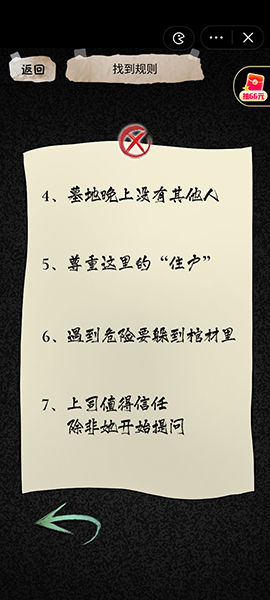 返回
找到规则
抽66元
4、墓地晚上没有其他人
5、尊重这里的“住户”
6、遇到危险要躲到棺材里
7、上司值得信任
除非她开始提问